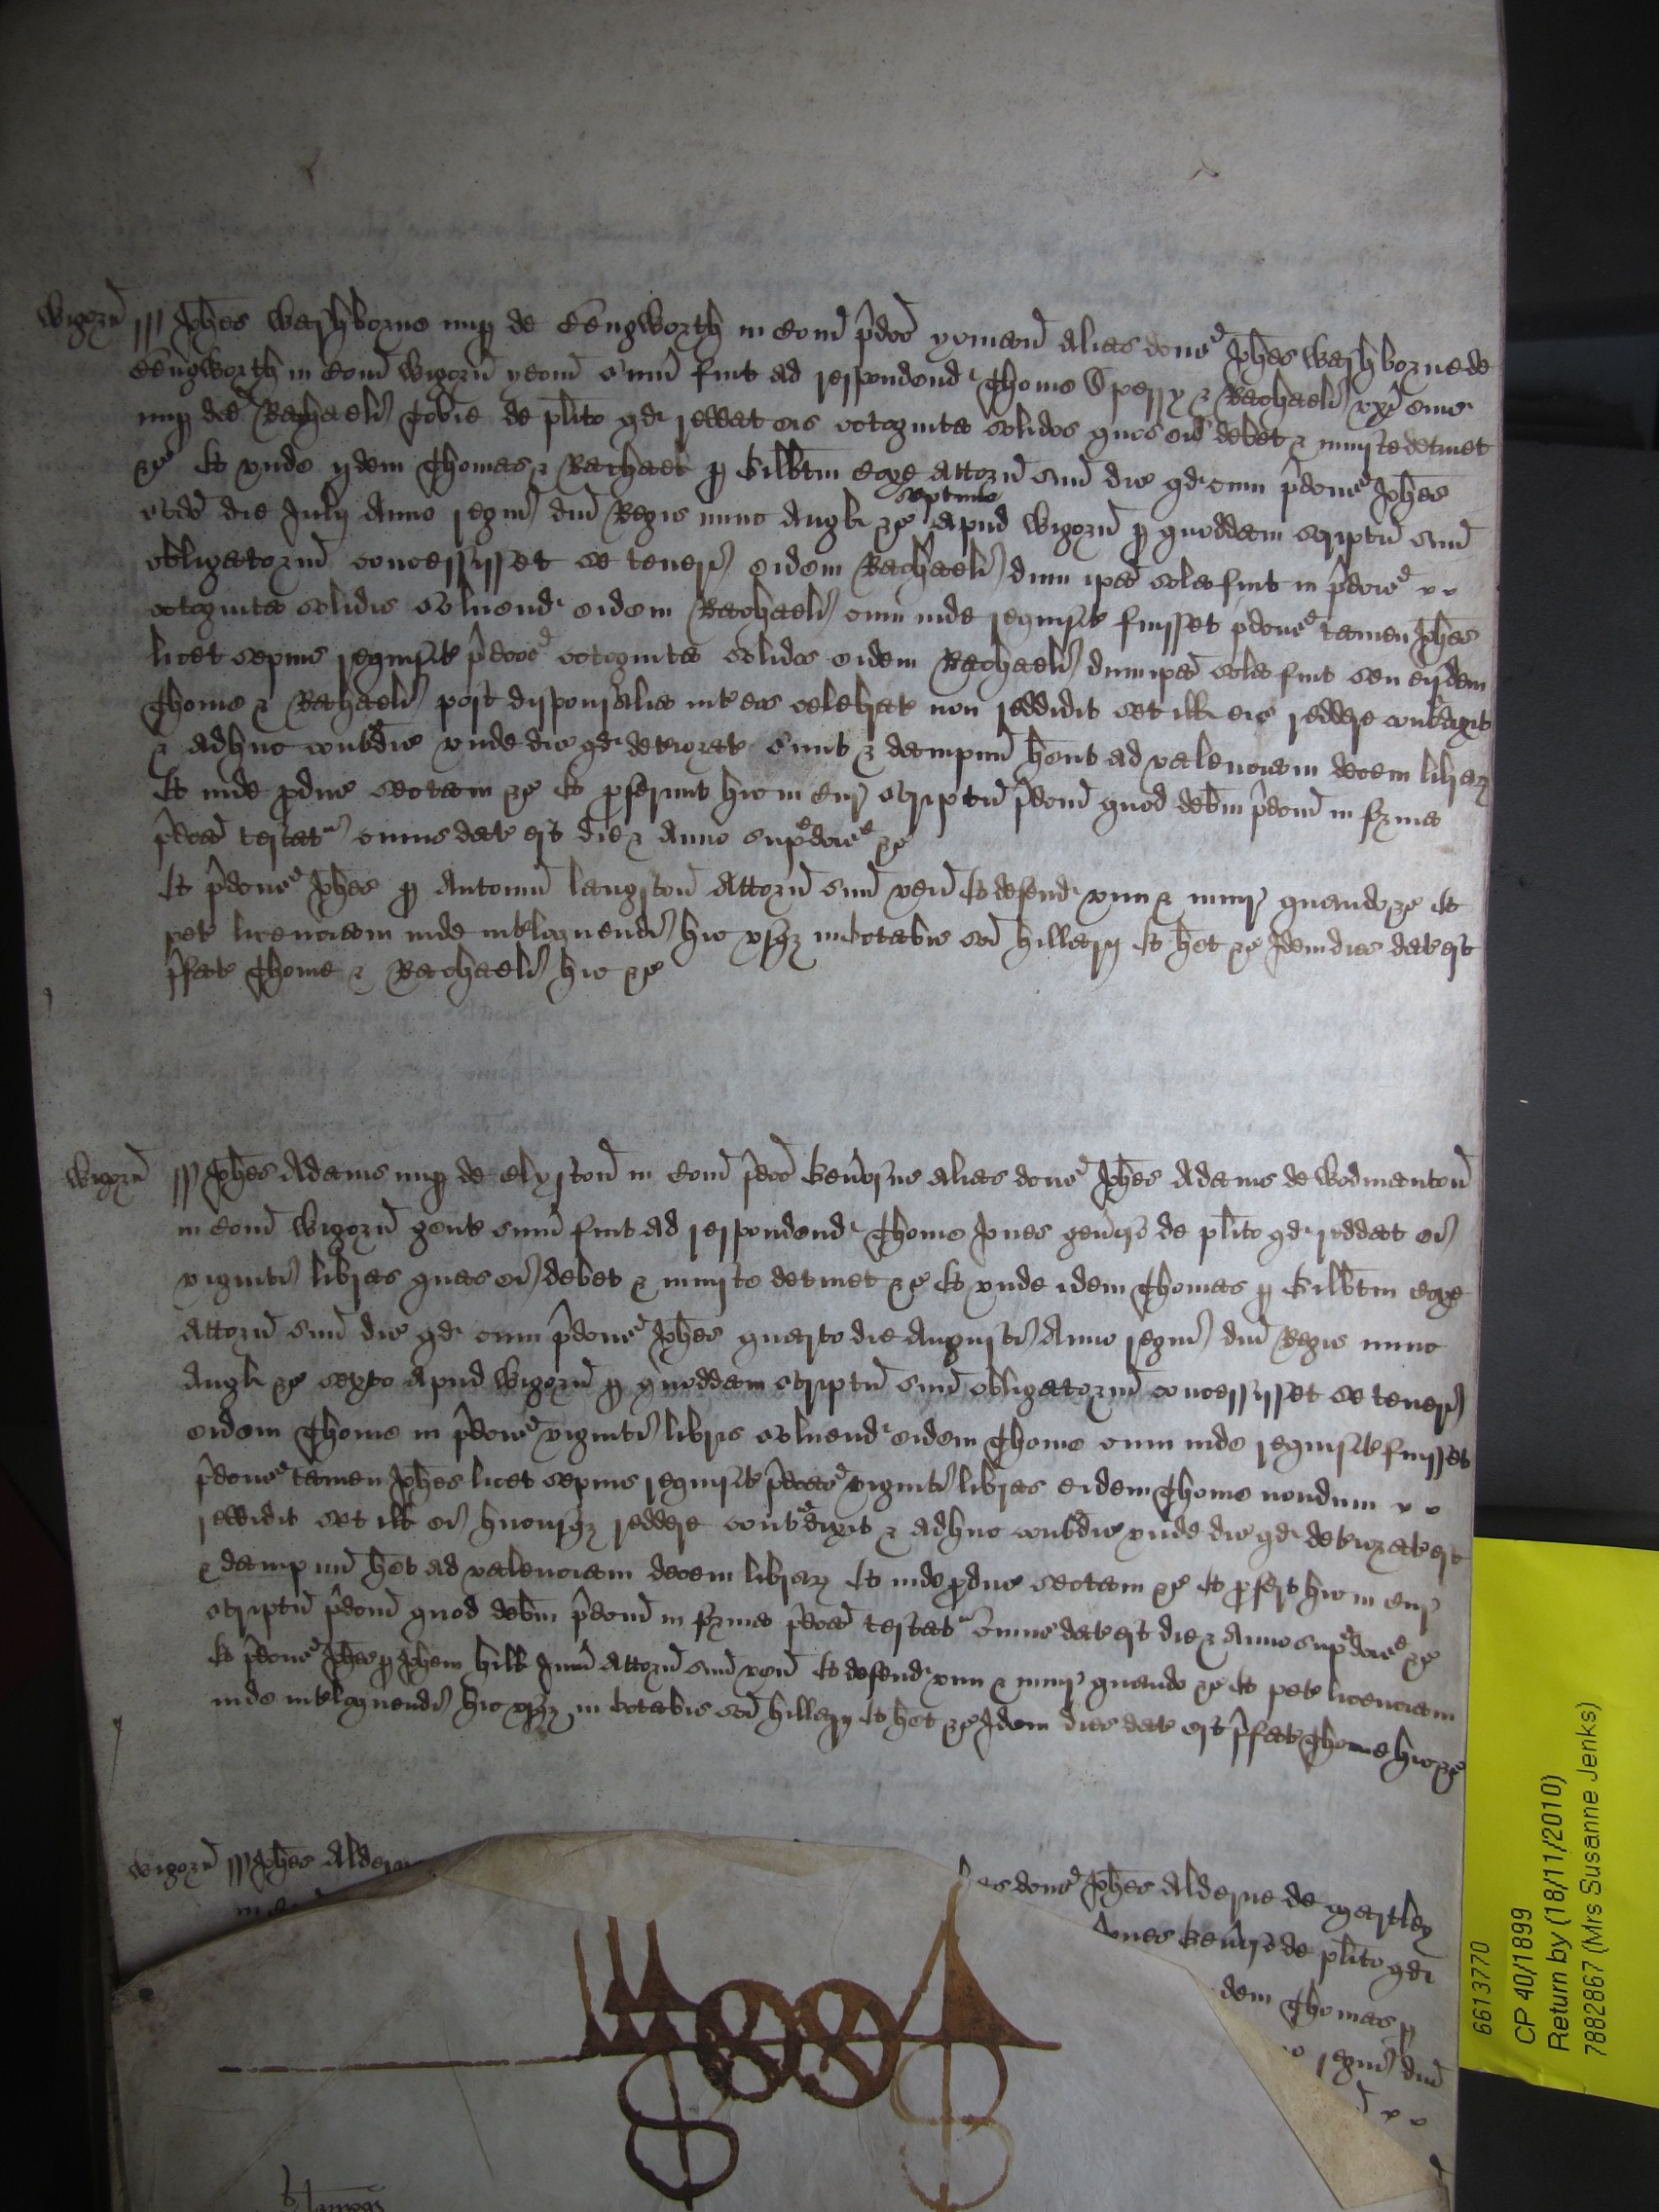 Wigorn̄ ſſ Joh̃es Wasshborne nup de Bengworth in Com̄ p̄dco yoman̄ alias dcus Joh̃es Wasshborne de
Bengworth in Com̄ Wigorn̄ yom̄ sum̄ fuit ad respondend Thome & Rachaeli uxi sue
nup dce Rachaeli de pl̃ito qd reddat eis octoginta solidos quos eis debet & iniuste detinet
&c Et unde ijdem Thomas & Rachael p Gilb̃tm Coxe attorn̄ suū dic qd cum p̄dcus Joh̃es
die Julij Anno regni dn̄i Regis nunc Angl &c septimo apud Wigorn̄ p quoddam scriptū suū
obligatoriū concessisset se teneri eidem Rachaeli dum ip̄a sola fuit in p̄dcis
octoginta solidis solvend eidem Rachaeli cum inde requisit fuisset p̄dcus tamen Joh̃es
licet sepius requisit p̄dcos octoginta solidos eidem Rachaeli dum ip̄a sola fuit seu eisdem
Thome & Rachaeli post disponsalia int eos celebrat non reddidit set ill eis reddere contradixit
& adhuc contradic unde dic qd deteriorat sunt & dampnū h̃ent ad valenciam decem librarz
Et inde produc sectam &c Et proferunt hic in Cur scriptū p̄dcm̄ quod deb̃m p̄dcm̄ in forma
p̄dca testat cuius dat est die & Anno sup̃dcis &c
Et p̄dcus Joh̃es p Antoniū Langston̄ Attorn̄ suū ven̄ Et defend vim & iniur quando &c Et
pet licenciam inde int̃loquendi hic usqz in Octabis sc̄i Hillarij Et h̃et &c Idem dies dat est
p̄fat Thome & Rachaeli hic &c
Wigorn̄ ſſ Joh̃es Adams nup de Clyfton̄ in Com̄ p̄dco gen̄osus alias dcus Joh̃es Adams de Wodmanton̄
in Com̄ Wigorn̄ gent sum̄ fuit ad respondend Thome Jnes gen̄oso de pl̃ito qd reddat ei
viginti libras quas ei debet & iniuste detinet &c Et unde idem Thomas p Gilb̃tm Coxe
attorn̄ suū dic qd cum p̄dcus Joh̃es quarto die Augusti Anno regni dn̄i Regis nunc
Angl &c sexto apud Wigorn̄ p quoddam scriptū suū obligatoriū concessisset se teneri
eidem Thome in p̄dcis viginti libris solvend eidem Thome cum inde requisit fuisset
p̄dcus tamen Joh̃es licet sepius requisit p̄dcas viginti libras eidem Thome nondum
reddidit set ill ei hucusqz reddere contradixit & adhuc contradic unde dic qd deteriorat est
& dampnū h̃et ad valenciam decem librarz Et inde produc sectam &c Et profert hic in Cur
scriptū p̄dcm̄ quod deb̃m p̄dcm̄ in forma p̄dca testat cuius dat est die & Anno sup̃dcis &c
Et p̄dcus Joh̃es p Joh̃em Hill Jun̄ attorn̄ suū ven̄ Et defend vim & iniur quando &c Et pet licenciam
inde int̃loquendi hic usqz in Octabis sc̄i Hillarij Et h̃et &c Idem dies dat est p̄fat Thome hic &c
Wigorn̄ ſſ Joh̃es Alder
dcus Joh̃es Alderne de Martley
Jnes gen̄oso de pl̃ito qd
dem Thomas p
regni dn̄i
6613770
CP 40/1899
Return by (18/11/2010)
7882867 (Mrs Susanne Jenks)